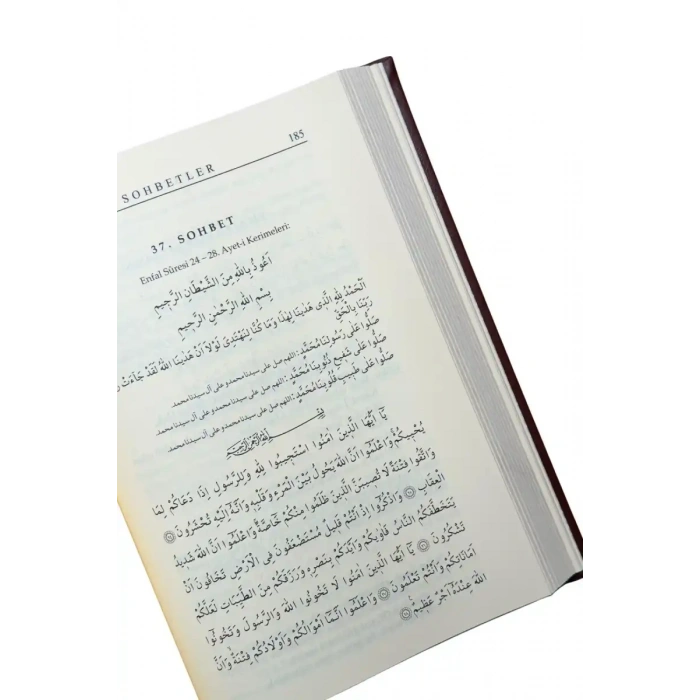 185
SOHBETLER
37. SOHBET
Enfal Sûresi 24 – 28. Ayet-i Kerimeleri:
اَعُوذُ بِاللّٰهِ مِنَ الشَّيْطَانِ الرَّجِيمِ
بِسْمِ اللّٰهِ الرَّحْمٰنِ الرَّحِيمِ
اَلْحَمْدُ لِلّٰهِ الَّذِى هَدٰينَا لِهٰذَا وَمَا كُنَّا لِنَهْتَدِىَ لَوْلَا اَنْ هَدٰينَا اللّٰهُ لَقَدْ جَاءَتْ
رَبِّنَا بِالْحَقِّ
صَلُّوا عَلٰى رَسُولِنَا مُحَمَّدٍ: اللهم صل على سيدنا محمد و على آل سيدنا محمد
صَلُّوا عَلٰى شَفِيعِ ذُنُوبِنَا مُحَمَّدٍ: اللهم صل على سيدنا محمد و على آل سيدنا محمد
صَلُّوا عَلٰى طَبِيبِ قُلُوبِنَا مُحَمَّدٍ: اللهم صل على سيدنا محمد و على آل سيدنا محمد
بِسْمِ اللّٰهِ الرَّحْمٰنِ الرَّحِيمِ
يَا اَيُّهَا الَّذِينَ اٰمَنُوا اسْتَجِيبُوا لِلّٰهِ وَلِلرَّسُولِ اِذَا دَعَاكُمْ لِمَا
يُحْيِيكُمْ وَاعْلَمُوا اَنَّ اللّٰهَ يَحُولُ بَيْنَ الْمَرْءِ وَقَلْبِهِ وَاَنَّهُ اِلَيْهِ تُحْشَرُونَ
وَاتَّقُوا فِتْنَةً لَا تُصِيبَنَّ الَّذِينَ ظَلَمُوا مِنْكُمْ خَاصَّةً وَاعْلَمُوا اَنَّ اللّٰهَ شَدِيدُ
الْعِقَابِ وَاذْكُرُوا اِذْ اَنْتُمْ قَلِيلٌ مُسْتَضْعَفُونَ فِى الْاَرْضِ تَخَافُونَ اَنْ
يَتَخَطَّفَكُمُ النَّاسُ فَاٰوٰيكُمْ وَاَيَّدَكُمْ بِنَصْرِهِ وَرَزَقَكُمْ مِنَ الطَّيِّبَاتِ لَعَلَّكُمْ
تَشْكُرُونَ يَا اَيُّهَا الَّذِينَ اٰمَنُوا لَا تَخُونُوا اللّٰهَ وَالرَّسُولَ وَتَخُونُوا
اَمَانَاتِكُمْ وَاَنْتُمْ تَعْلَمُونَ وَاعْلَمُوا اَنَّمَا اَمْوَالُكُمْ وَاَوْلَادُكُمْ فِتْنَةٌ وَاَنَّ
اللّٰهَ عِنْدَهُ اَجْرٌ عَظِيمٌ